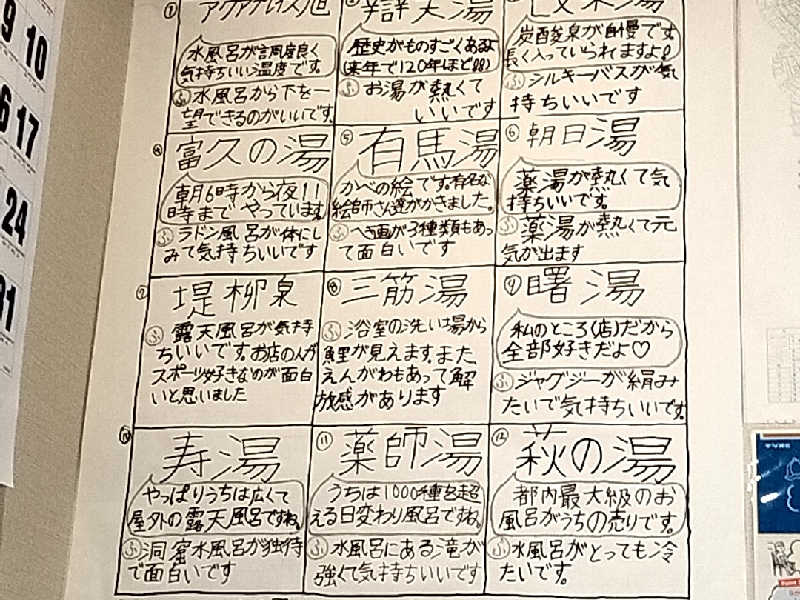 9 10
6 17
24
31
①
水風呂が言周度良く
気持ちいい温度です。
㋫水風呂から下を一
望できるのがいいです。
辯天湯
歴史がものすごくあるよ
(来年で120年ほど)
㋫お湯が熱くて
いいです
炭酸泉が自慢です
長く入っていられますよ!
㋫シルキーバスが気
持ちいいです
④富久の湯
朝6時から夜11
時までやっています。
㋫ラドン風呂が体にし
みて気持ちいいです
⑤有馬湯
かべの絵です。有名な
絵師さん達がかきました。
㋫ペき画が3種類もあっ
て面白いです
⑥朝日湯
薬湯が熱くて気
持ちいいです。
㋫薬湯が熱くて元
気が出ます
⑦堤柳泉
㋫露天風呂が気持
ちいいです。お店の人が
スポーツ好きなのが面白
いと思いました
⑧三筋湯
㋫浴室の洗い場から
鯉が見えます。また
えんがわもあって解
放感があります
⑨曙湯
私のところ(店)だから
全部好きだよ♡
㋫ジャグジーが絹み
たいで気持ちいいです。
⑩寿湯
やっぱりうちは広くて
屋外の露天風呂ですね。
㋫洞窟水風呂が独特
で面白いです
⑪薬師湯
うちは1000種を超
える日変わり風呂ですね。
㋫水風呂にある滝が
強くて気持ちいいです
⑫萩の湯
都内最大級のお
風呂がうちの売りです。
㋫水風呂がとっても冷
たいです。